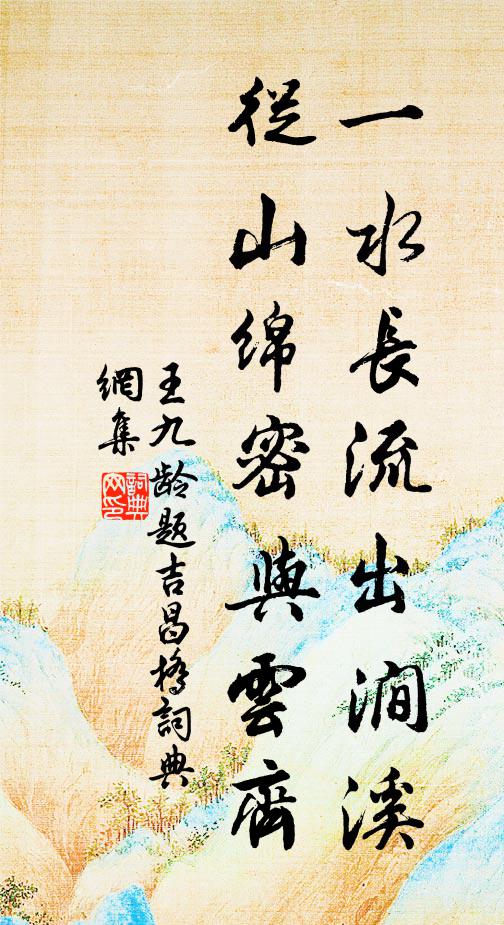 一水長流出澗溪
從山綿密與雲齊
王九龄题吉昌橋詞典
網集
詞典
网印